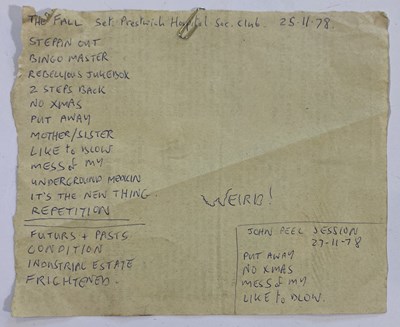 THE FALL Set Prestwich Hospital Soc. Club. 25-11-78
STEPPIN OUT
BINGO MASTER
REBELLIOUS JUKEBOX
2 STEPS BACK
NO XMAS
PUT AWAY
MOTHER/SISTER
LIKE to BLOW
MESS of MY
UNDERGROUND MEDICIN
IT'S THE NEW THING
REPETITION
WEIRD!
FUTURS + PASTS
CONDITION
INDUSTRIAL ESTATE
FRIGHTENED.
JOHN PEEL SESSION
27-11-78
PUT AWAY
NO XMAS
MESS of MY
LIKE to BLOW.